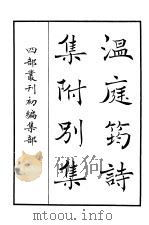 溫庭筠詩
集附別集
四部叢刊初編集部
mtoou.info